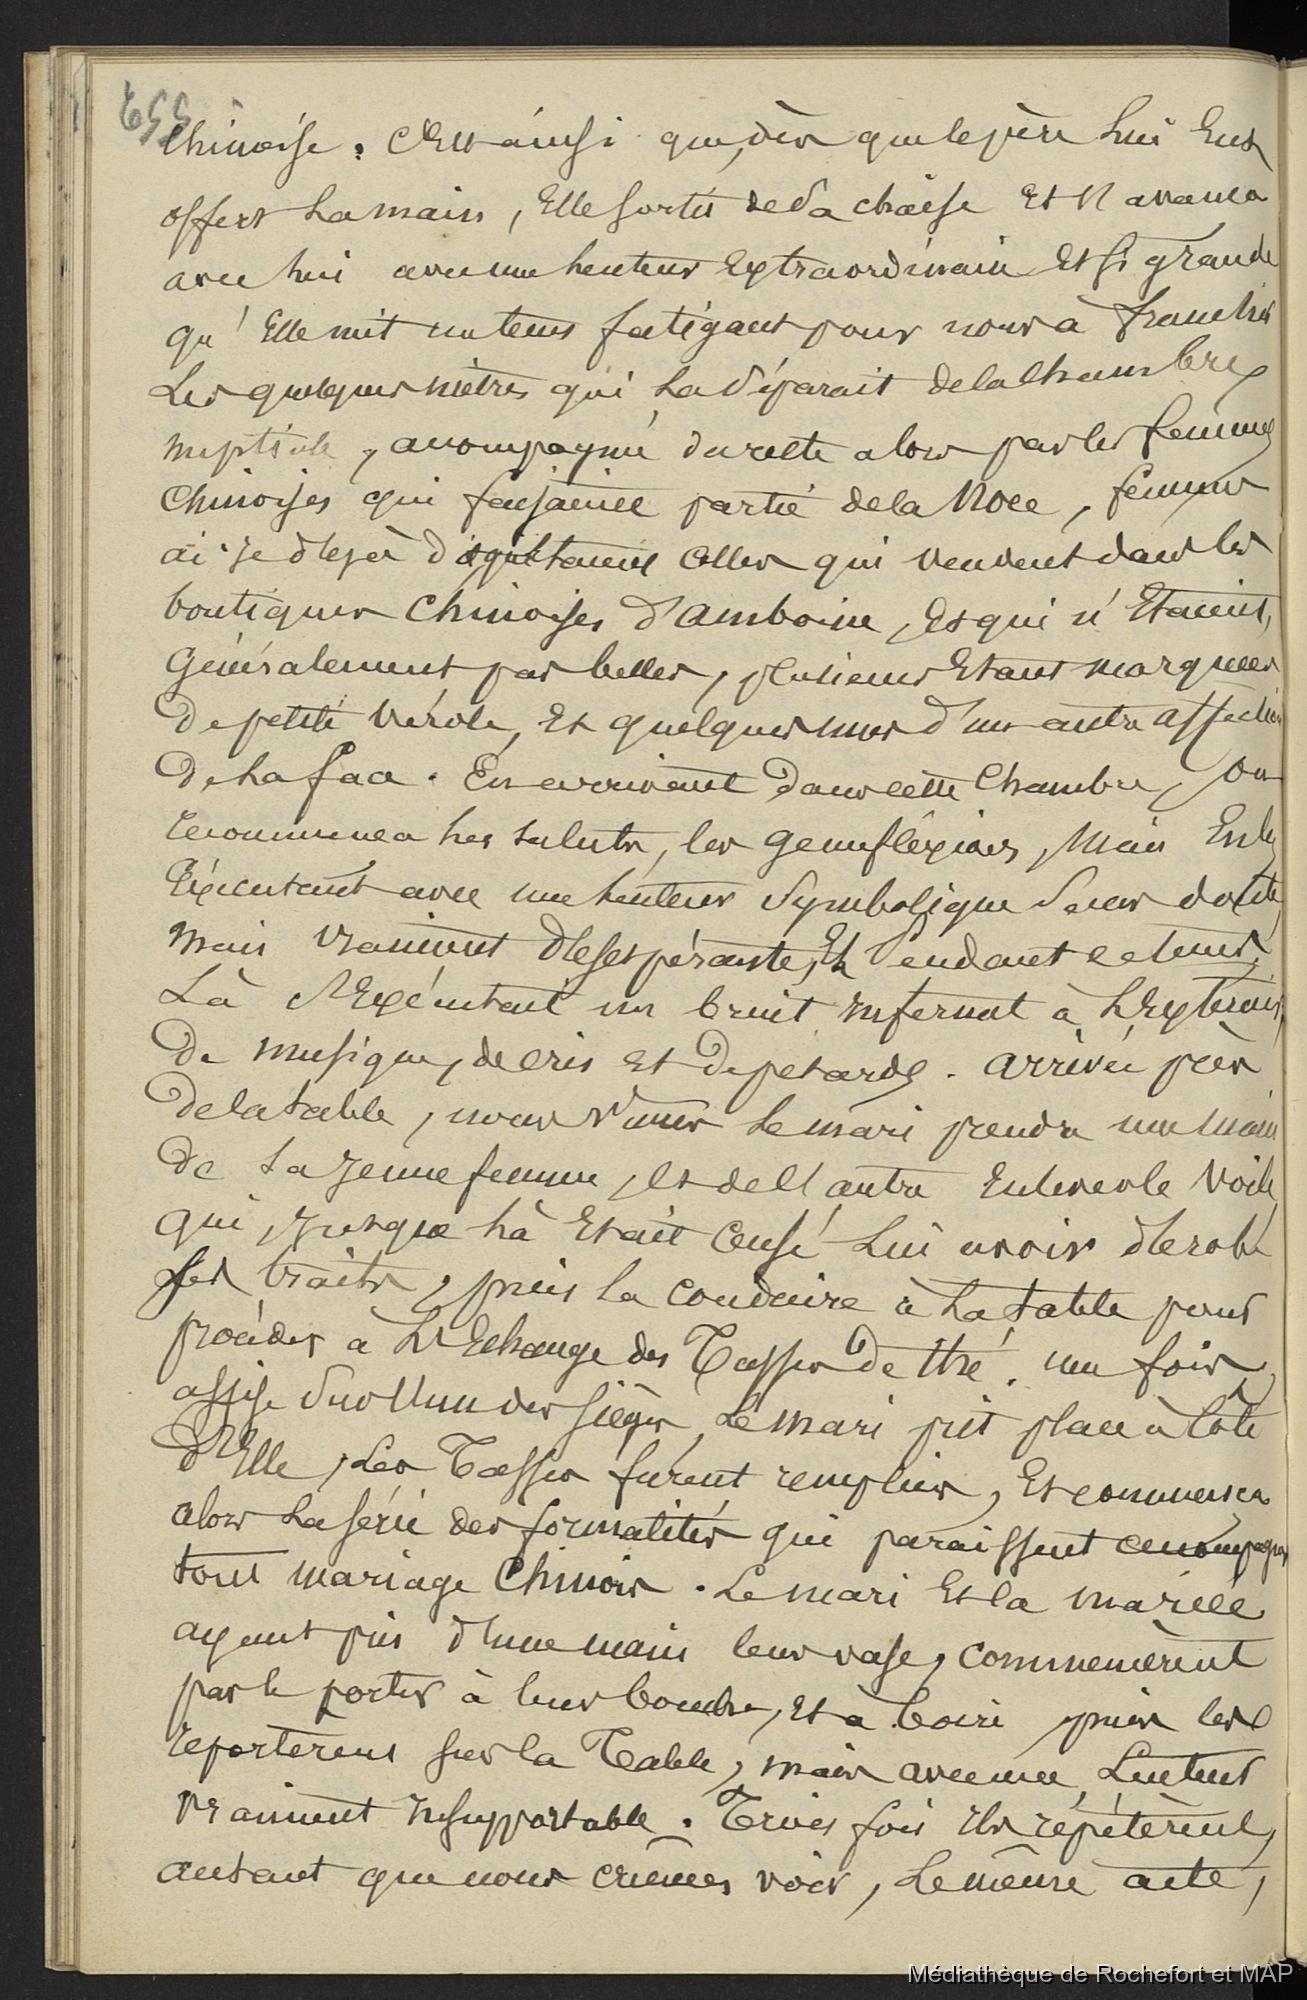 552
Chinoise. C'est ainsi que, dès que le père lui eut
offert la main, Elle sortit de sa chaise Et s'avança
avec lui avec une lenteur Extraordinaire Et si grande
qu'Elle mit un tems fatigant pour nous à franchir
Les quelques mètres qui La Séparait de la Chambre
nuptiale, accompagné du reste alors par les femmes
Chinoises qui fesaient partie de la Noce, femmes
ai-je déjà dis qui étaient celles qui vendent dans les
boutiques Chinoises d'Amboine, Et qui n'Etaient,
Généralement pas belles, plusieurs Etant marquées
De petite Vérole, Et quelques unes d'une autre affection
De La face. En arrivant Dans cette Chambre, on
recommença les saluts, les génuflexions, Mais En les
Exécutant avec une lenteur Symbolique Sans doute
mais vraiment désespérante, Et Pendant ce tems
Là s'Exécutait un bruit infernal à L'Extérieur,
De musique, de cris Et De petards. Arrivée près
De la table, nous vîmes Le mari prendre une main
De sa Jeune femme, Et de l'autre Enlever le voile
qui, Jusque là Etait Censé Lui avoir dérobé
ses traits, puis la conduire à La table pour
procéder à L'Echange des Tasses De thé. une fois
assise Sur l'un des sièges, Le mari prit place à côté
d'Elle, Les Tasses furent remplies, Et commença
alors La série des formalités qui paraissent accompagner
tout mariage Chinois. Le mari Et la mariée
ayant pris d'une main leur vase, commencèrent
par le porter à leur bouche, Et à boire puis les
reporterent sur la Table, mais avec une Lenteur
vraiment insupportable. Trois fois ils répétèrent,
autant que nous crûmes voir, Le même acte,
Médiathèque de Rochefort et MAP